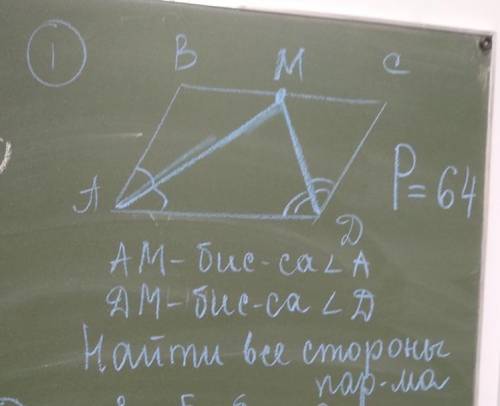 1
B M C
A D
P=64
AM-бис-са∠A
DM-бис-са∠D
Найти все стороны
пар-ма